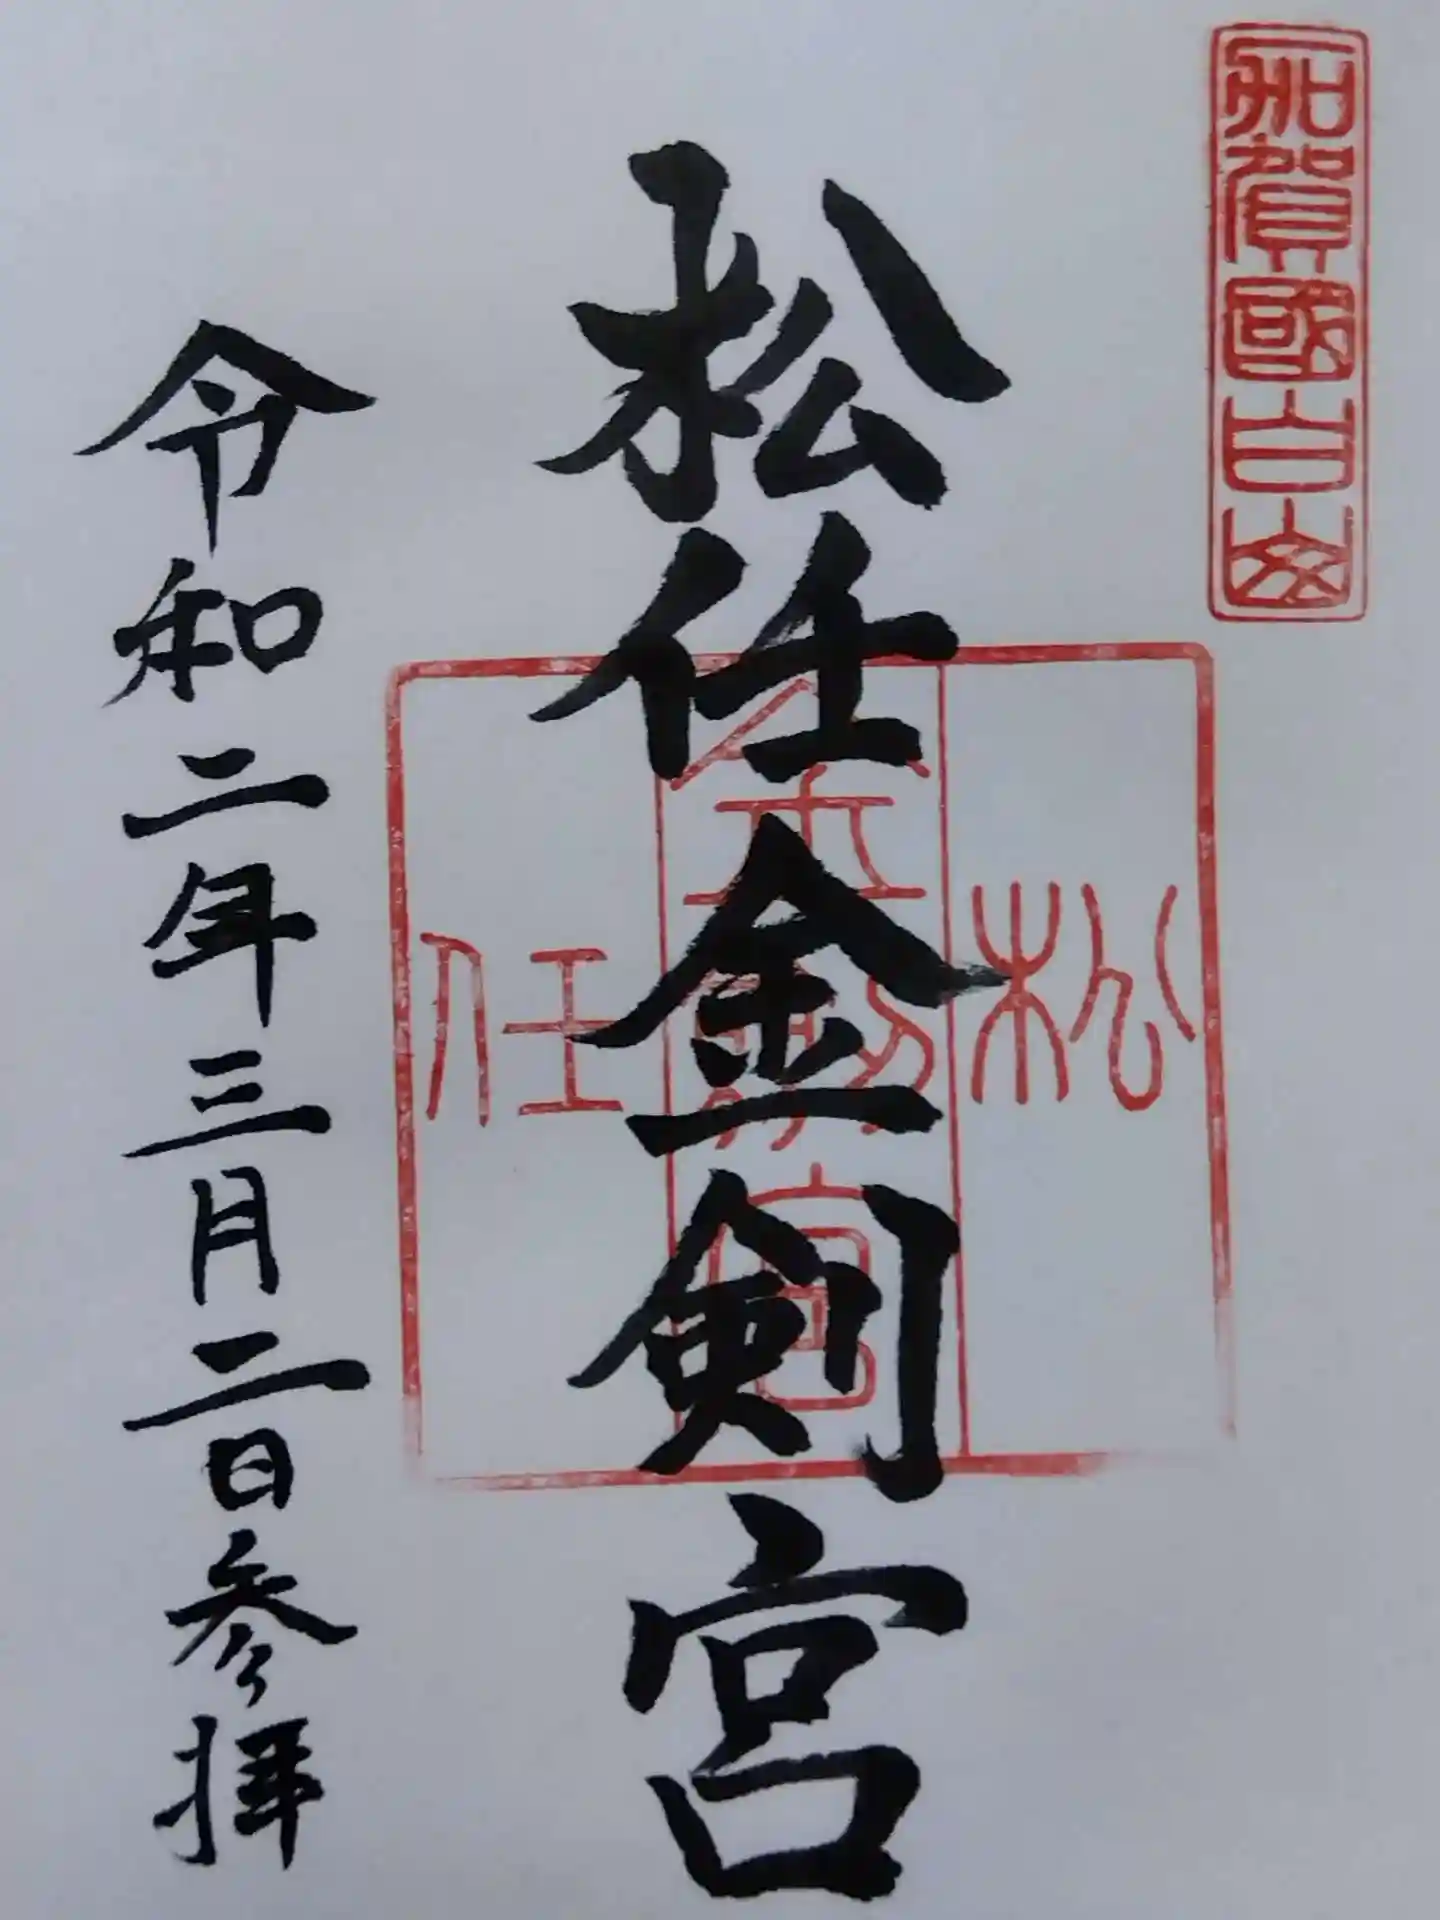 加賀國白山
松任金剣宮
松
金剱宮
任
令和二年三月二日参拝